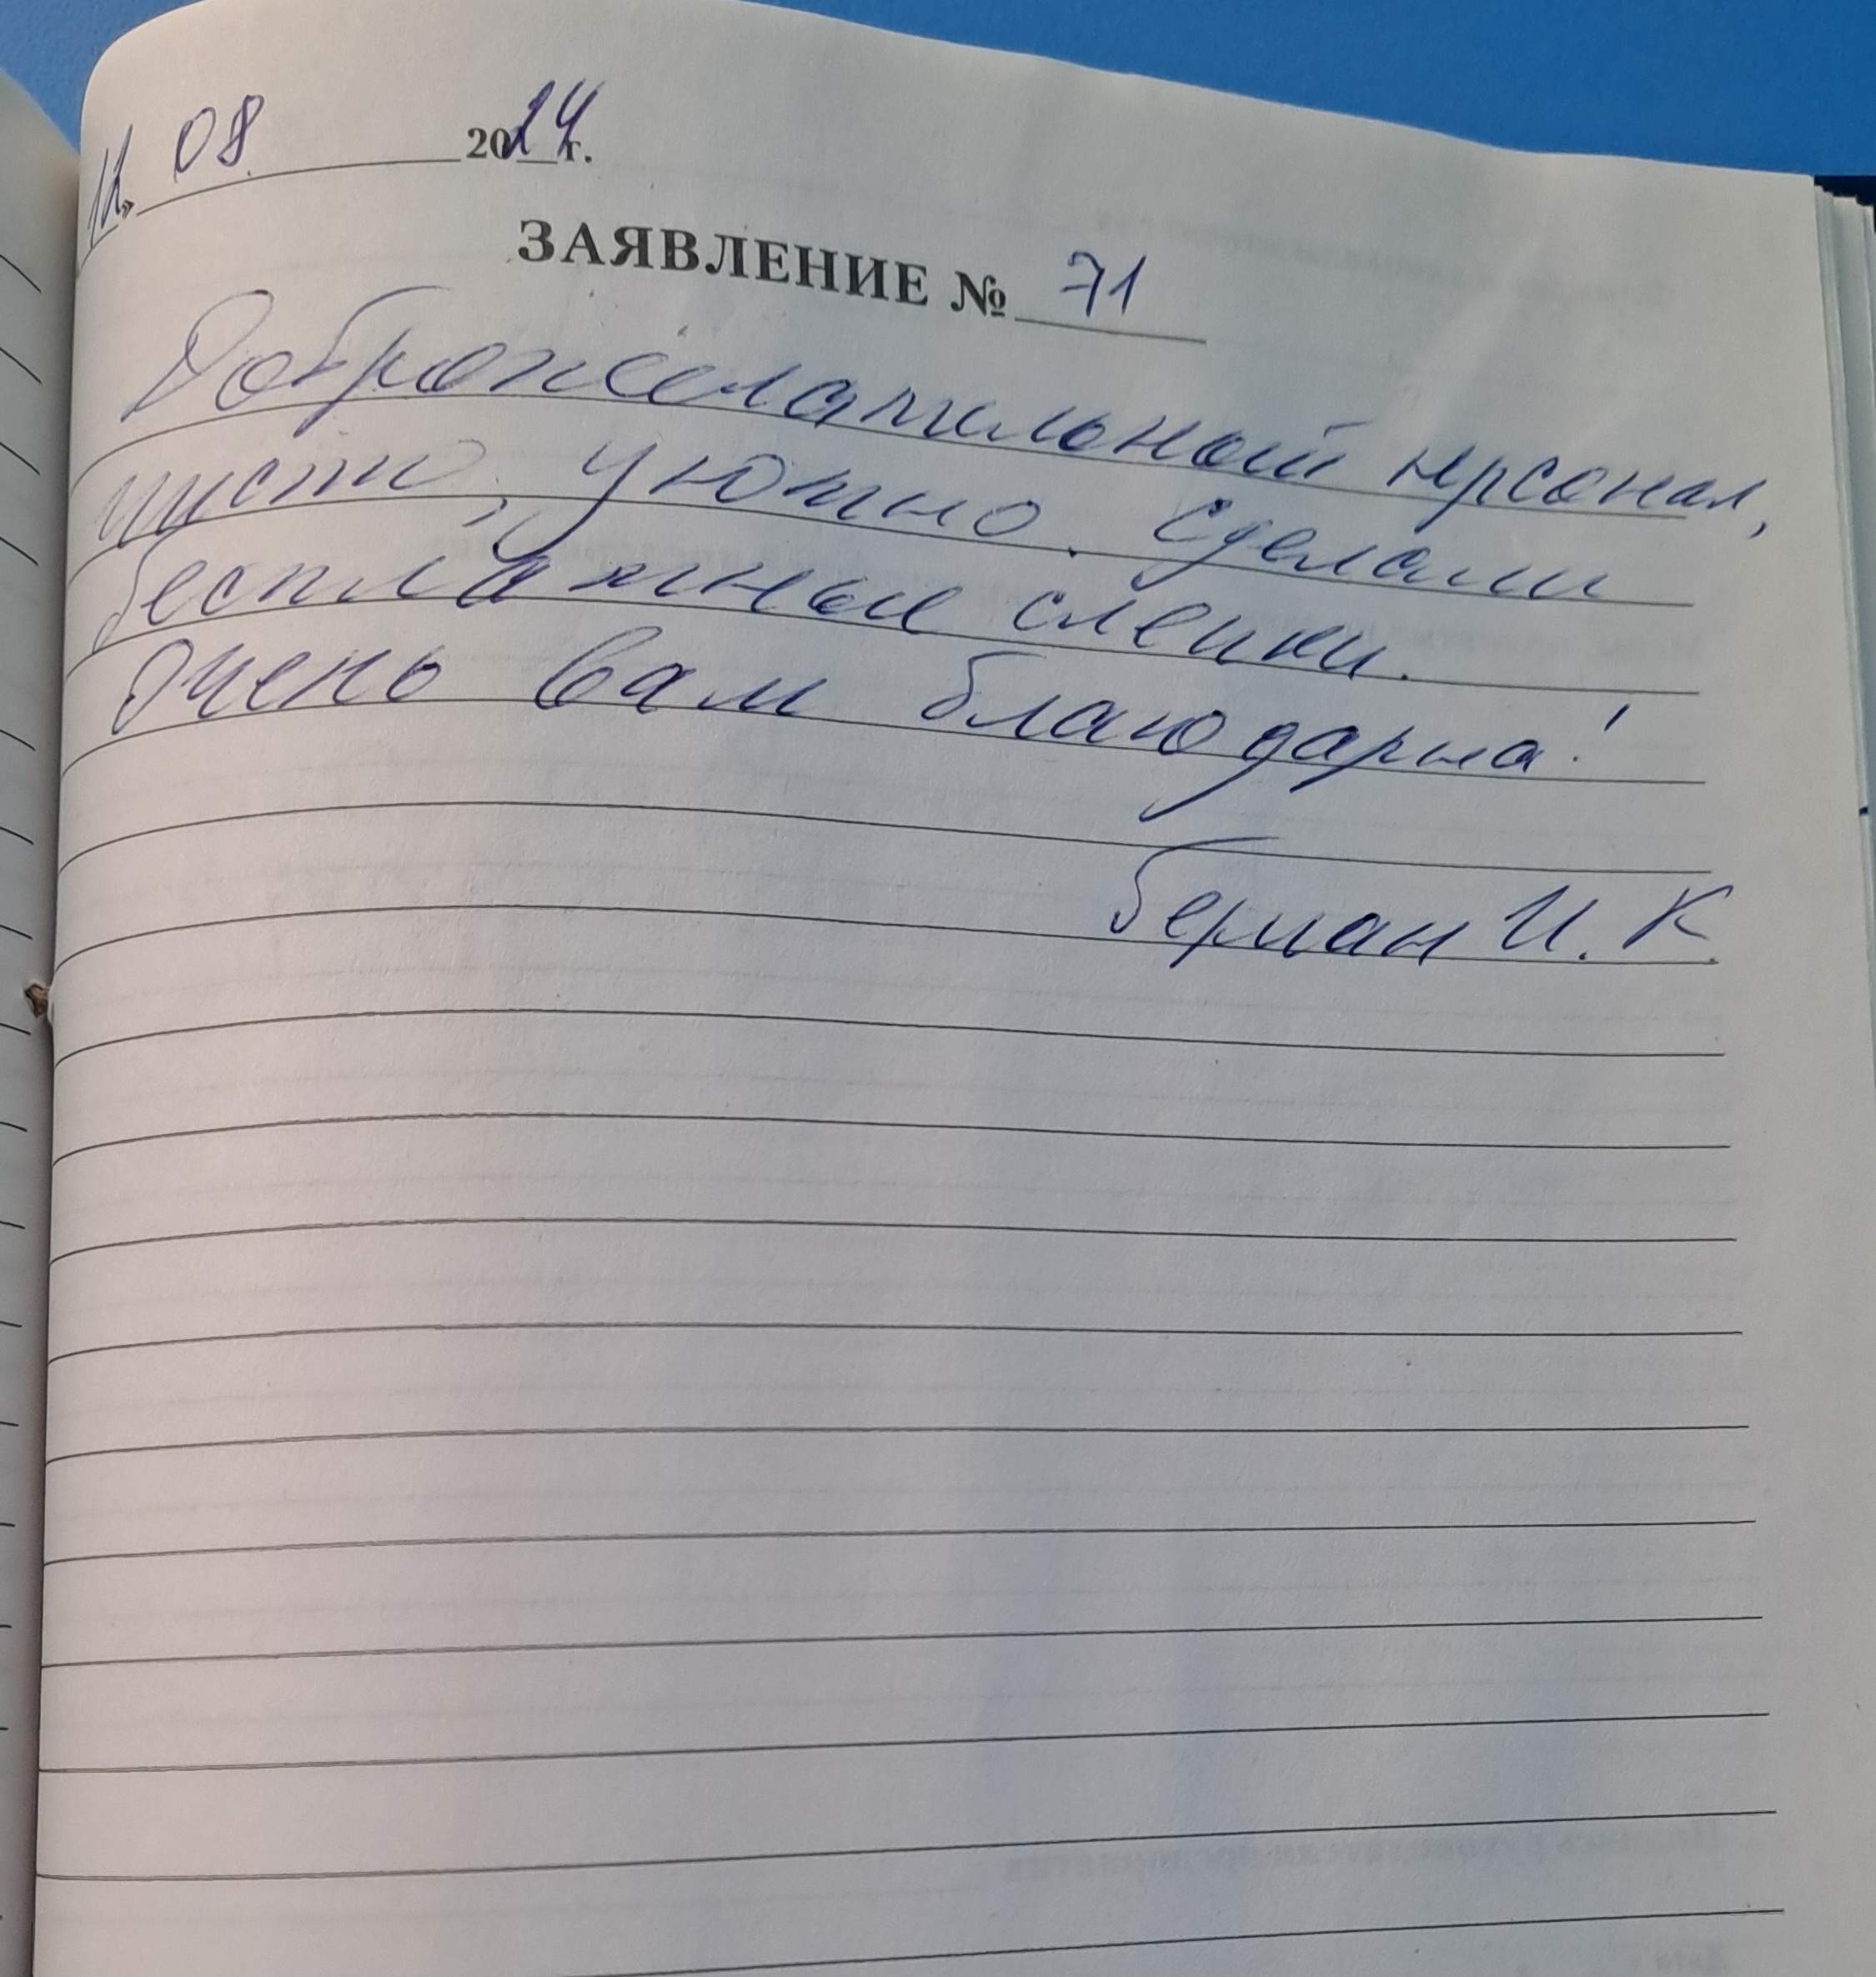 11» 08. 2024 г.
ЗАЯВЛЕНИЕ № 71
Доброжелательный персонал,
чисто, уютно. Сделали
бесплатные слепки.
Очень вам благодарна!
Берман И. К.